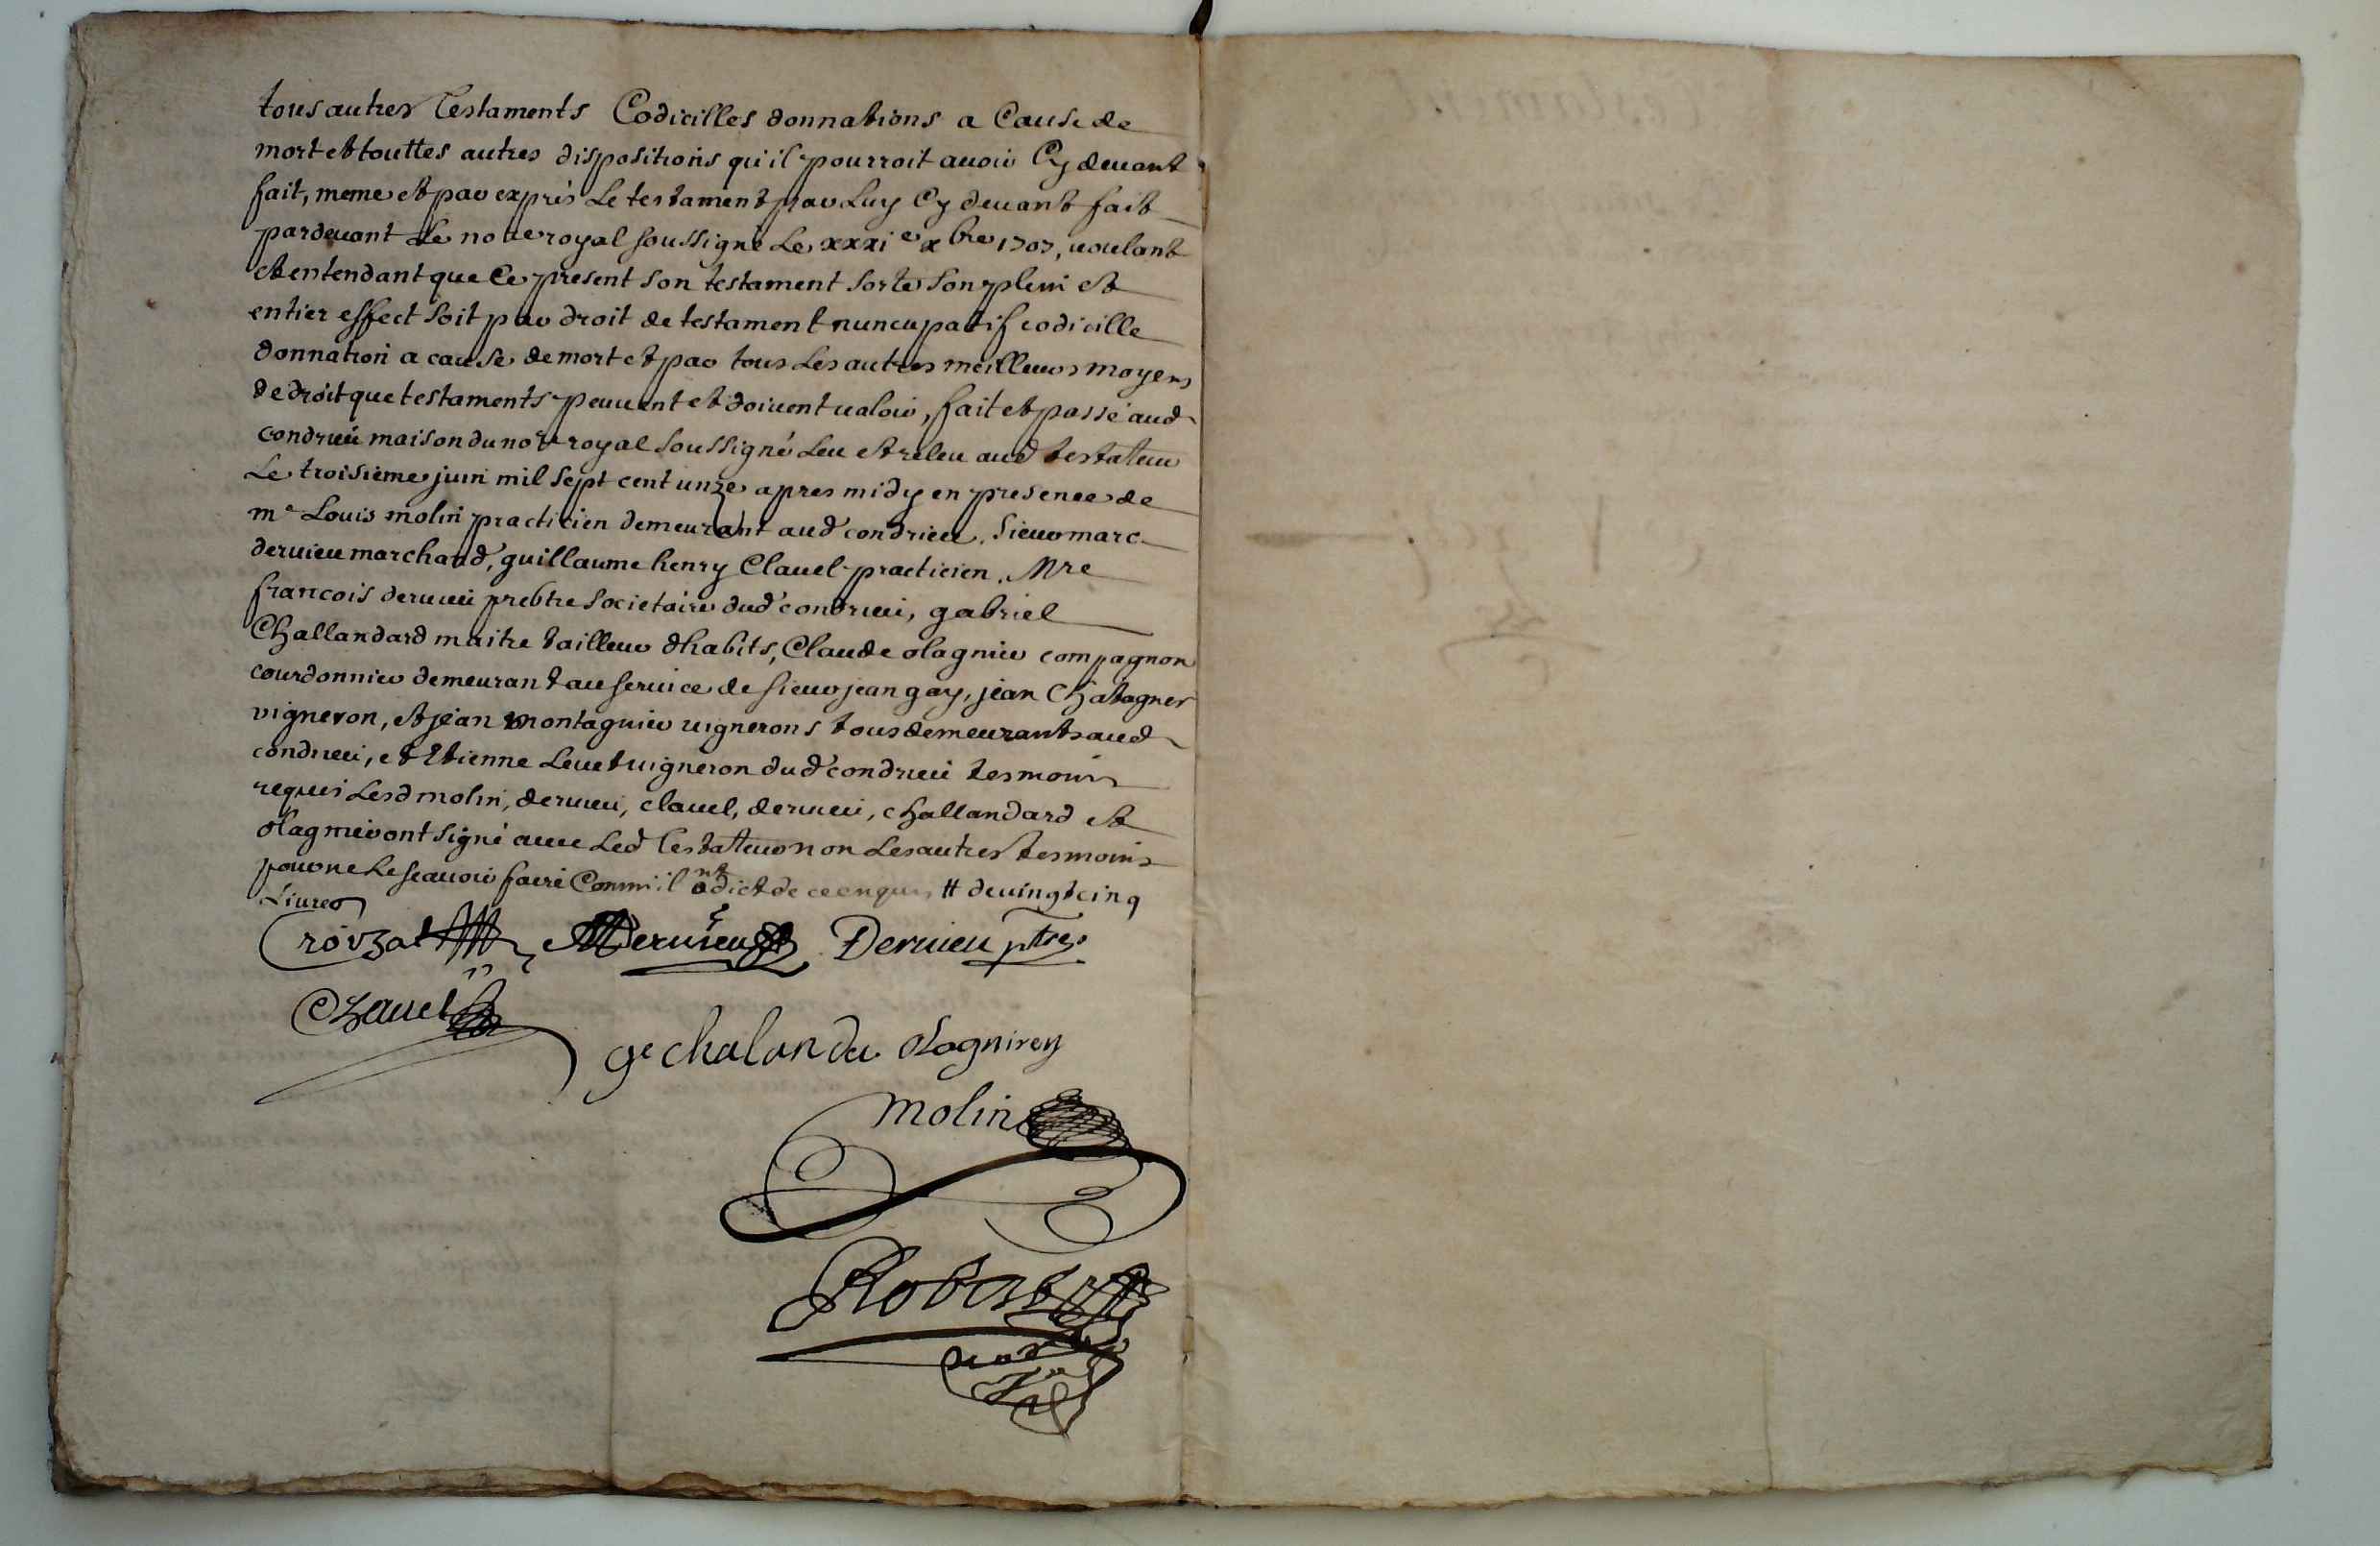 tous autres testaments Codicilles donnations a Cause de
mort et touttes autres dispositions qu'il pourroit avoir Cy devant
fait, meme et par exprés Le testament par Luy Cy devant fait
pardevant Le note royal soussigné Le xxxi e xbre 1707, voulant
et entendant que Ce present son testament sorte son plein et
entier effect soit par droit de testament nuncupatif codicille
donnation a cause de mort et par tous Les autres meilleurs moyens
de droit que testaments peuvent et doivent valoir, fait et passé aud
condrieu maison du no re royal soussigné Leu et releu aud testateur
Le troisième juin mil sept cent unze apres midy en presence de
me Louis molin practicien demeurant aud condrieu, sieur marc
dervieu marchand, guillaume henry Clavel practicien, Mre
francois dervieu prebtre societaire dud condrieu, gabriel
Challandard maitre tailleur dhabits, Claude olagnier compagnon
courdonnier demeurant au service de sieur jean gay, jean Chatagner
vigneron, et jean montagnier vignerons tous demeurants aud
condrieu, et Etienne Levet vigneron dud condrieu tesmoins
requis Lesd molin, dervieu, clavel, dervieu, challandard et
olagnier ont signé avec Led testateur non Les autres tesmoins
pour ne Le scavoir faire Comm'il nt dict de ce enquis # de vingt cinq
Livres
Crovzat MDervieu Dervieu ptre
Clavel
ge chalandar olagnirey
molin
Robert